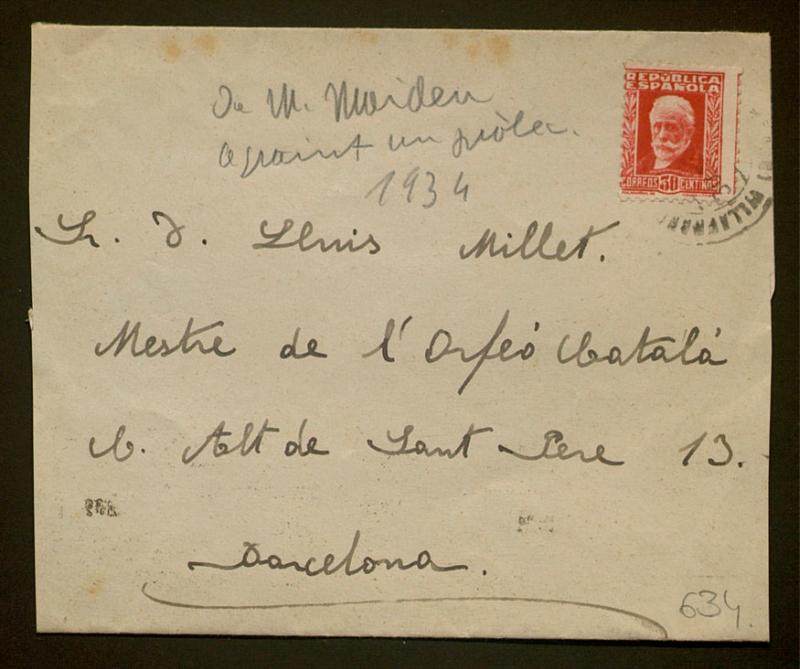 de M. Maiden
agraint un pròlec.
1934
REPÚBLICA
ESPAÑOLA
CORREOS 30 CENTIMOS
VILLAFRAN
Sr. D. Lluis Millet.
Mestre de l'Orfeó Català
C. Alt de Sant Pere 13.
Barcelona.
634.